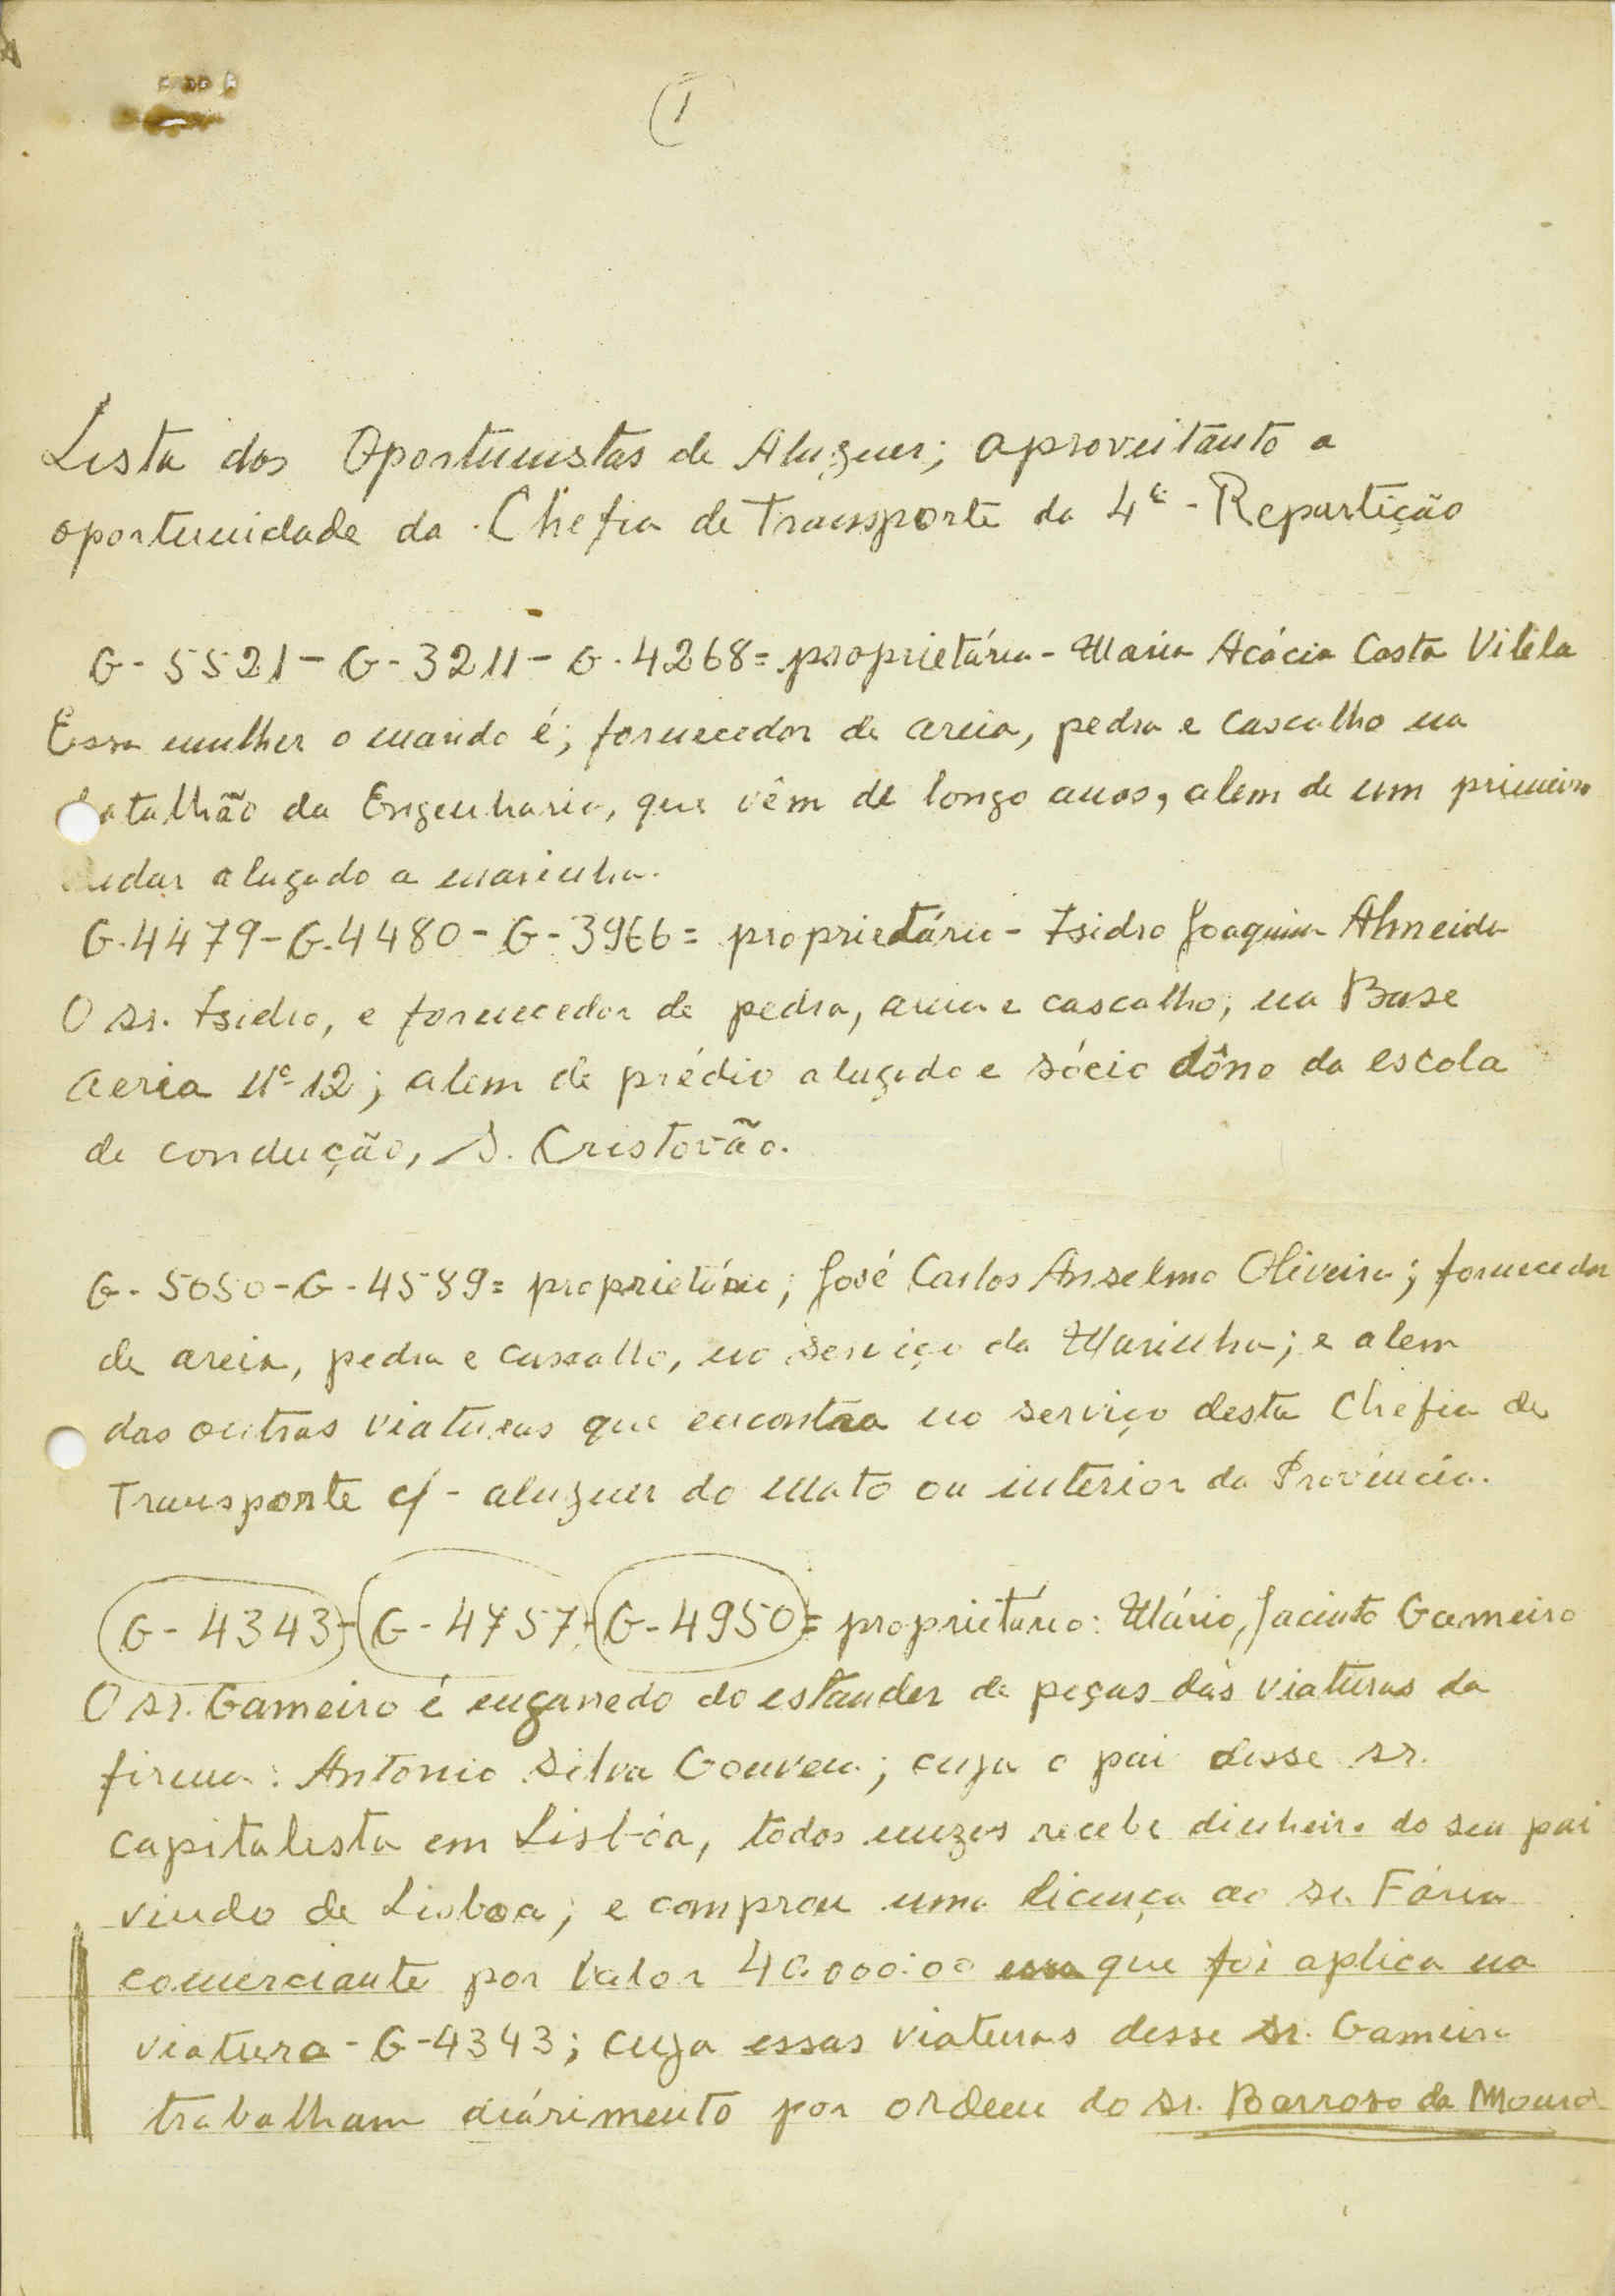 (1)
Lista dos Oportunistas de Aluguer; aproveitanto a
oportunidade da Chefia de Transporte da 4ª - Repartição
G - 5521 - G - 3211 - G. 4268 = proprietária - Maria Acácia Costa Vilela
Essa mulher o marido é; fornecedor de areia, pedra e cascalho na
batalhão da Engenharia, que vêm de longo anos, alem de um primeiro
andar alugado a marinha.
G. 4479 - G. 4480 - G - 3966 = proprietário - Isidro Joaquim Almeida
O sr. Isidro, e fornecedor de pedra, areia e cascalho, na Base
aeria nº 12; alem de prédio alugado e sócio dôno da escola
de condução, S. Cristovão.
G - 5050 - G - 4589 = proprietário; José Carlos Anselmo Oliveira; fornecedor
de areia, pedra e cascalho, no serviço da Marinha; e alem
das outras viaturas que encontra no serviço desta Chefia de
Transporte c/ - aluguer do mato ou interior da Provincia.
G - 4343 - G - 4757 - G - 4950 = proprietário: Mário, Jacinto Gameiro
O sr. Gameiro é engarredo do estander de peças das viaturas da
firma: Antonio Silva Gouveia; cuja o pai desse sr.
capitalesta em Lisbôa, todos mezes recebe dinheiro do seu pai
vindo de Lisboa; e comprou uma licença ao sr. Fária
comerciante por valor 40.000.00 que foi aplica na
viatura - G - 4343; cuja essas viaturas desse sr. Gameiro
trabalham diárimento por ordem do sr. Barroso da Moura